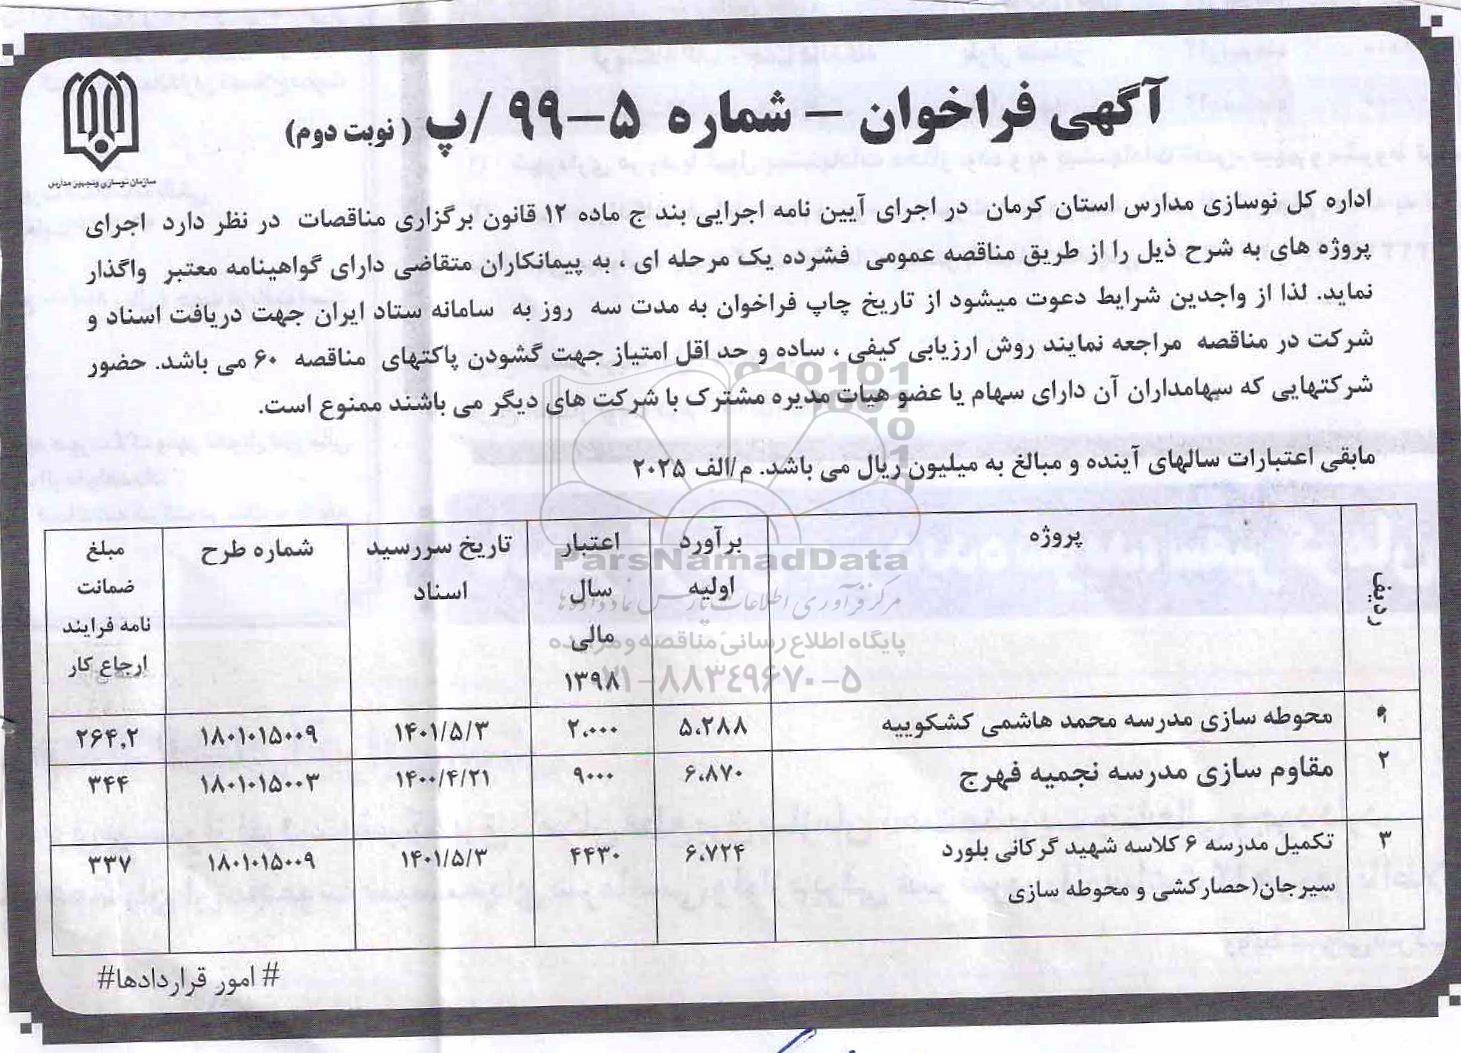 آگهی فراخوان – شماره ۵–۹۹ /پ (نوبت دوم)
سازمان نوسازی و تجهیز مدارس
اداره کل نوسازی مدارس استان کرمان در اجرای آیین نامه اجرایی بند ج ماده ۱۲ قانون برگزاری مناقصات در نظر دارد اجرای
پروژه های به شرح ذیل را از طریق مناقصه عمومی فشرده یک مرحله ای ، به پیمانکاران متقاضی دارای گواهینامه معتبر واگذار
نماید. لذا از واجدین شرایط دعوت میشود از تاریخ چاپ فراخوان به مدت سه روز به سامانه ستاد ایران جهت دریافت اسناد و
شرکت در مناقصه مراجعه نمایند روش ارزیابی کیفی ، ساده و حد اقل امتیاز جهت گشودن پاکتهای مناقصه ۶۰ می باشد. حضور
شرکتهایی که سهامداران آن دارای سهام یا عضو هیات مدیره مشترک با شرکت های دیگر می باشند ممنوع است.
مابقی اعتبارات سالهای آینده و مبالغ به میلیون ریال می باشد. م/الف ۲۰۲۵
ردیف پروژه برآورد اولیه اعتبار سال مالی ۱۳۹۸ تاریخ سررسید اسناد شماره طرح مبلغ ضمانت نامه فرایند ارجاع کار
۱ محوطه سازی مدرسه محمد هاشمی کشکوییه ۵،۲۸۸ ۲،۰۰۰ ۱۴۰۱/۵/۳ ۱۸۰۱۰۱۵۰۰۹ ۲۶۴.۲
۲ مقاوم سازی مدرسه نجمیه فهرج ۶،۸۷۰ ۹۰۰۰ ۱۴۰۰/۴/۲۱ ۱۸۰۱۰۱۵۰۰۳ ۳۴۴
۳ تکمیل مدرسه ۶ کلاسه شهید گرکانی بلورد ۶،۷۲۴ ۴۴۳۰ ۱۴۰۱/۵/۳ ۱۸۰۱۰۱۵۰۰۹ ۳۳۷
سیرجان(حصارکشی و محوطه سازی
# امور قراردادها#
ParsNamadData
مرکز فرآوری اطلاعات پارس نماد داده ها
پایگاه اطلاع رسانی مناقصه و مزایده
۰۲۱-۸۸۳۴۹۶۷۰-۵